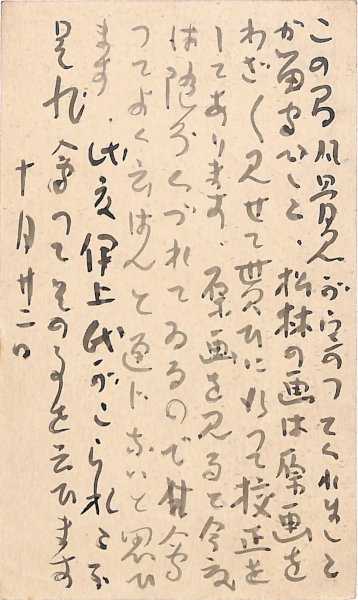 この間風見が寄つてくれました
が留守でした、松林の画は原画を
わざ〱見せて貰ひに行つて校正を
してあります、原画を見ると今度
は随分くづれてゐるので
つてよく云はんと通じないと思ひ
ます 此度伊上氏がこられたら
是非會つてその事を云ひます
十月廿二日